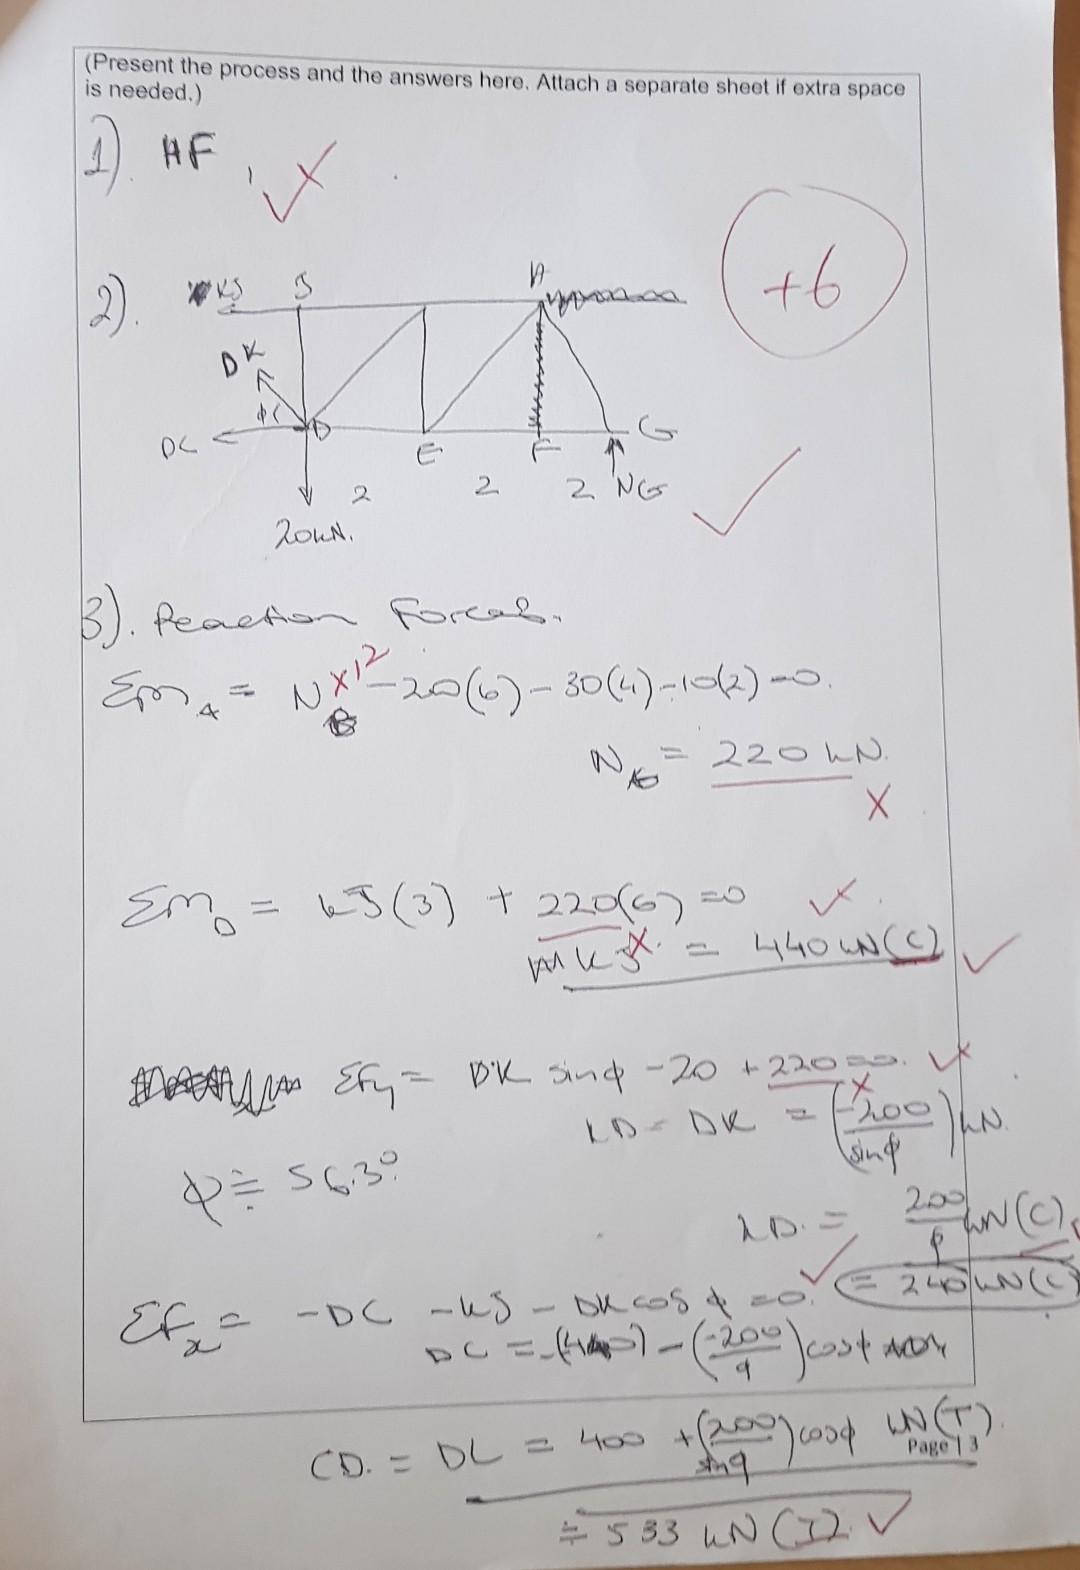 (Present the process and the answers here. Attach a separate sheet if extra space
is needed.)
1). HF,
+6
2). KJ J H
DK
ϕ
DC D E F G
2 2 2 NG
20kN.
3). Reaction Forces.
ΣM_A = N_G x12 - 20(6) - 30(4) - 10(2) = 0.
N_G = 220 kN.
x
ΣM_D = KJ(3) + 220(6) = 0
KJ = 440 kN (C)
ΣFy = DK sinϕ - 20 + 220 = 0.
KD = DK = (-200/sinϕ) kN.
ϕ ≑ 56.3°
KD. = 200/ϕ kN (C)
= 240 kN (C)
ΣFx = -DC - KJ - DK cos ϕ = 0.
DC = -(440) - (-200/ϕ) cosϕ
CD. = DC = 400 + (200/sinϕ) cosϕ kN (T).
Page | 3
≑ 533 kN (T).